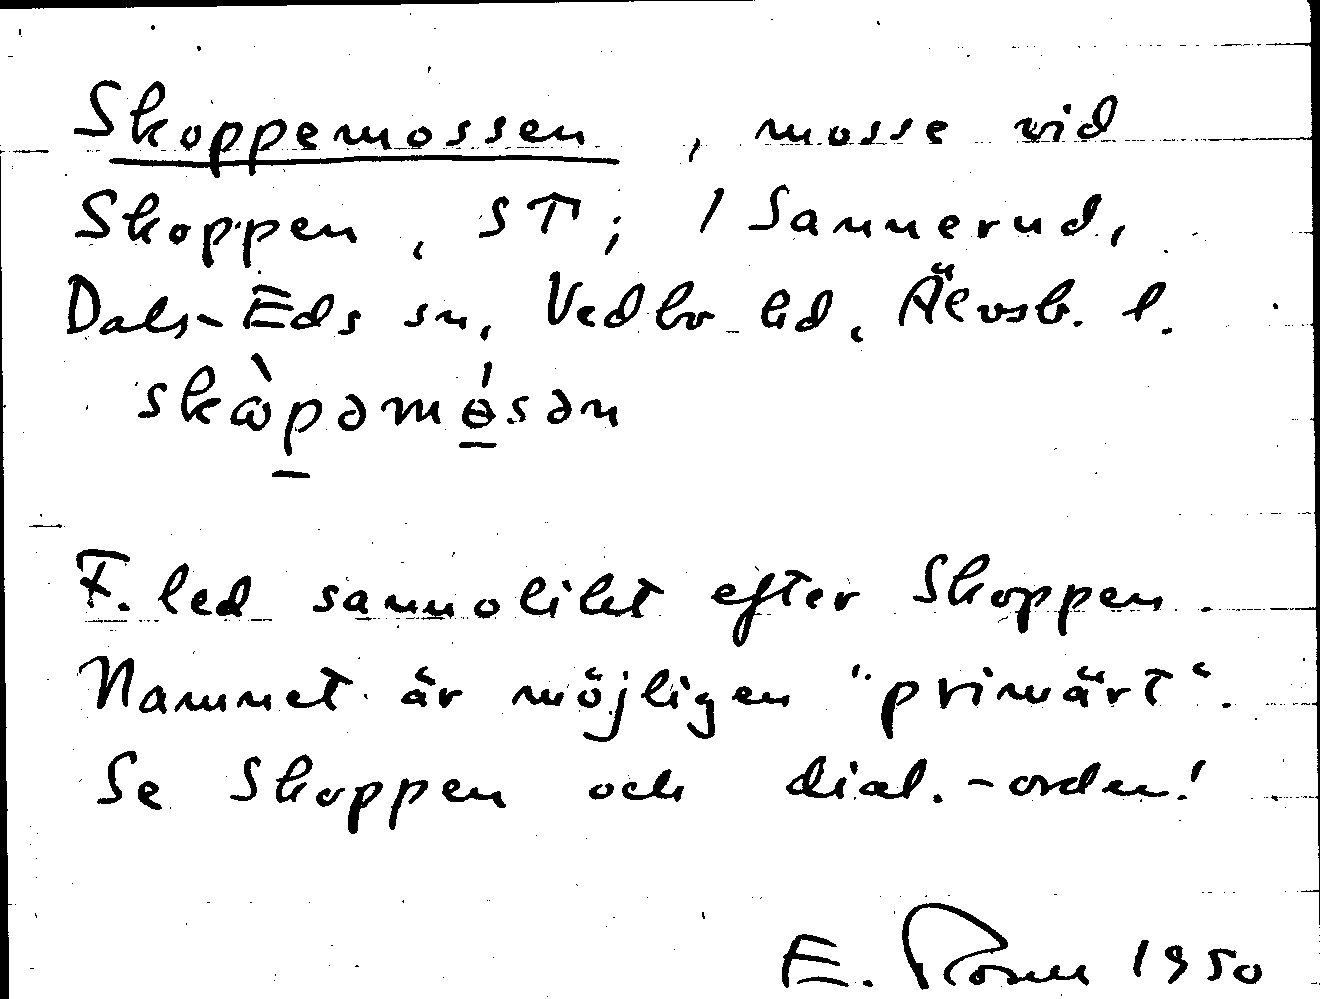 Skoppemossen, mosse vid
Skoppen, ST; 1 Sannerud,
Dals-Eds sn, Vedbo hd, Älvsb. l.
skὼpəmɵ́sən
F. led sannolikt efter Skoppen.
Namnet är möjligen "primärt".
Se Skoppen och dial.-orden!
E. 1950